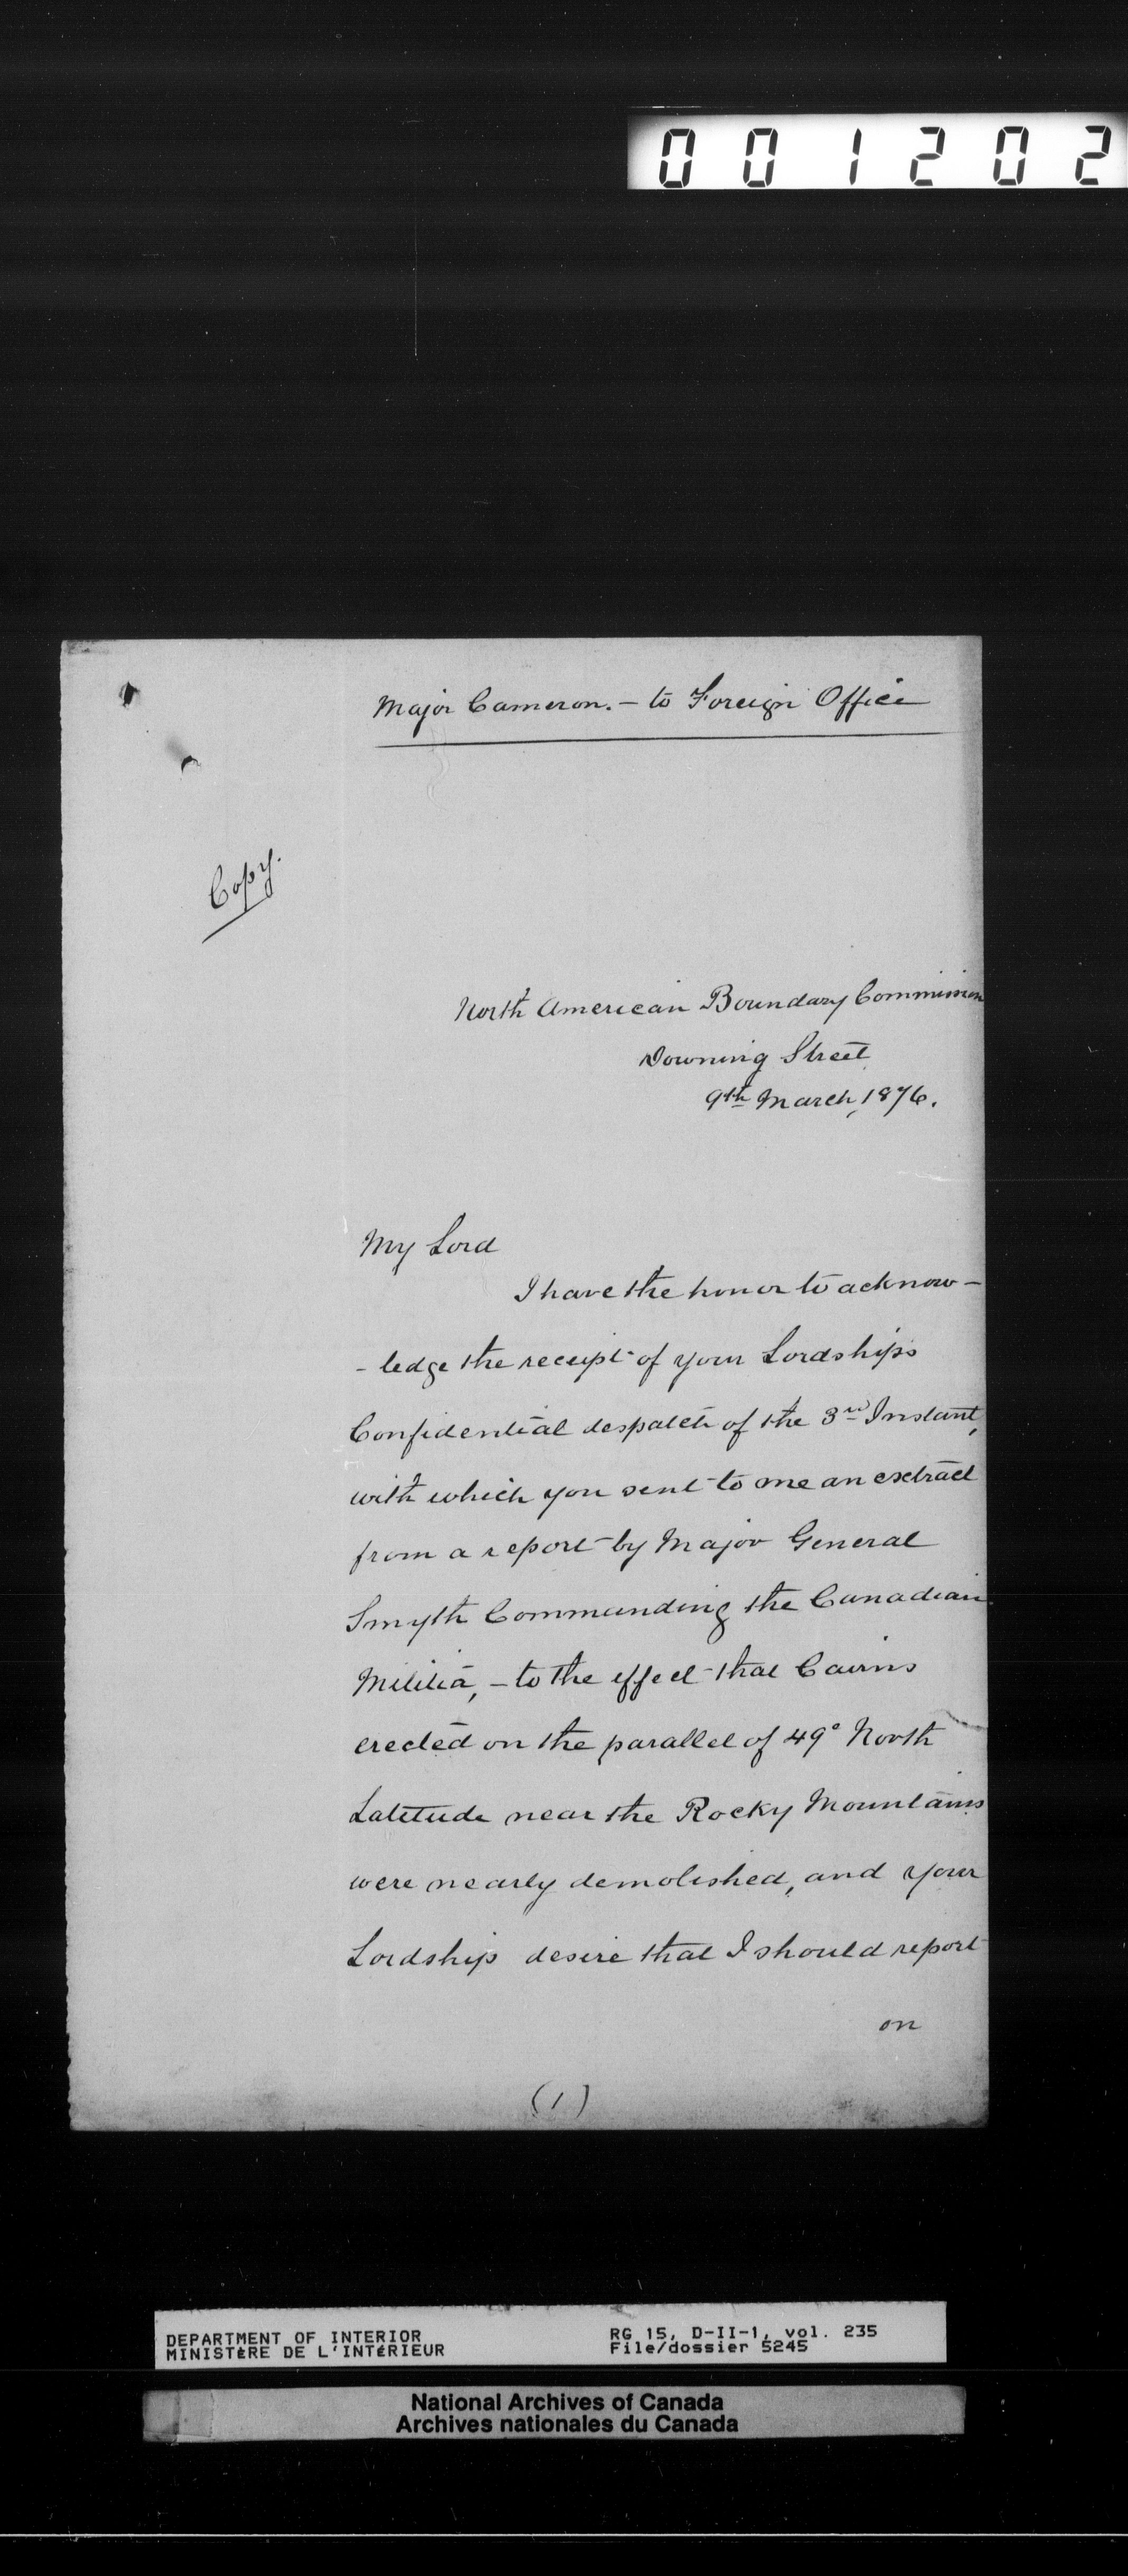 001202
Major Cameron. - to Foreign Office
Copy.
North American Boundary Commission
Downing Street
9th March, 1876.
My Lord
I have the honor to acknow-
- ledge the receipt of your Lordships
Confidential despatch of the 3rd Instant,
with which you sent to me an extract
from a report by Major General
Smyth Commanding the Canadian
Militia, - to the effect that Cairns
erected on the parallel of 49° North
Latitude near the Rocky Mountains
were nearly demolished, and your
Lordship desire that I should report
on
(1)
DEPARTMENT OF INTERIOR
MINISTÈRE DE L'INTÉRIEUR
RG 15, D-II-1, vol. 235
File/dossier 5245
National Archives of Canada
Archives nationales du Canada